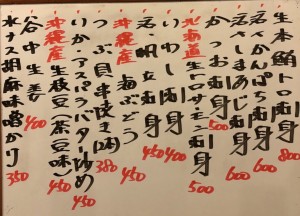 生本鮪トロ刺身 800
活〆かんぱち刺身 600
活〆しまあじ刺身 600
かつお刺身 500
北海道生トロサーモン刺身 500
いわし刺身 450
活帆立刺身 400
沖縄産海ぶどう 450
つぶ貝串焼き 380
いか・アスパラバター炒め 450
沖縄産生枝豆(茶豆味) 450
谷中生姜 400
水ナス胡麻味噌かけ 350